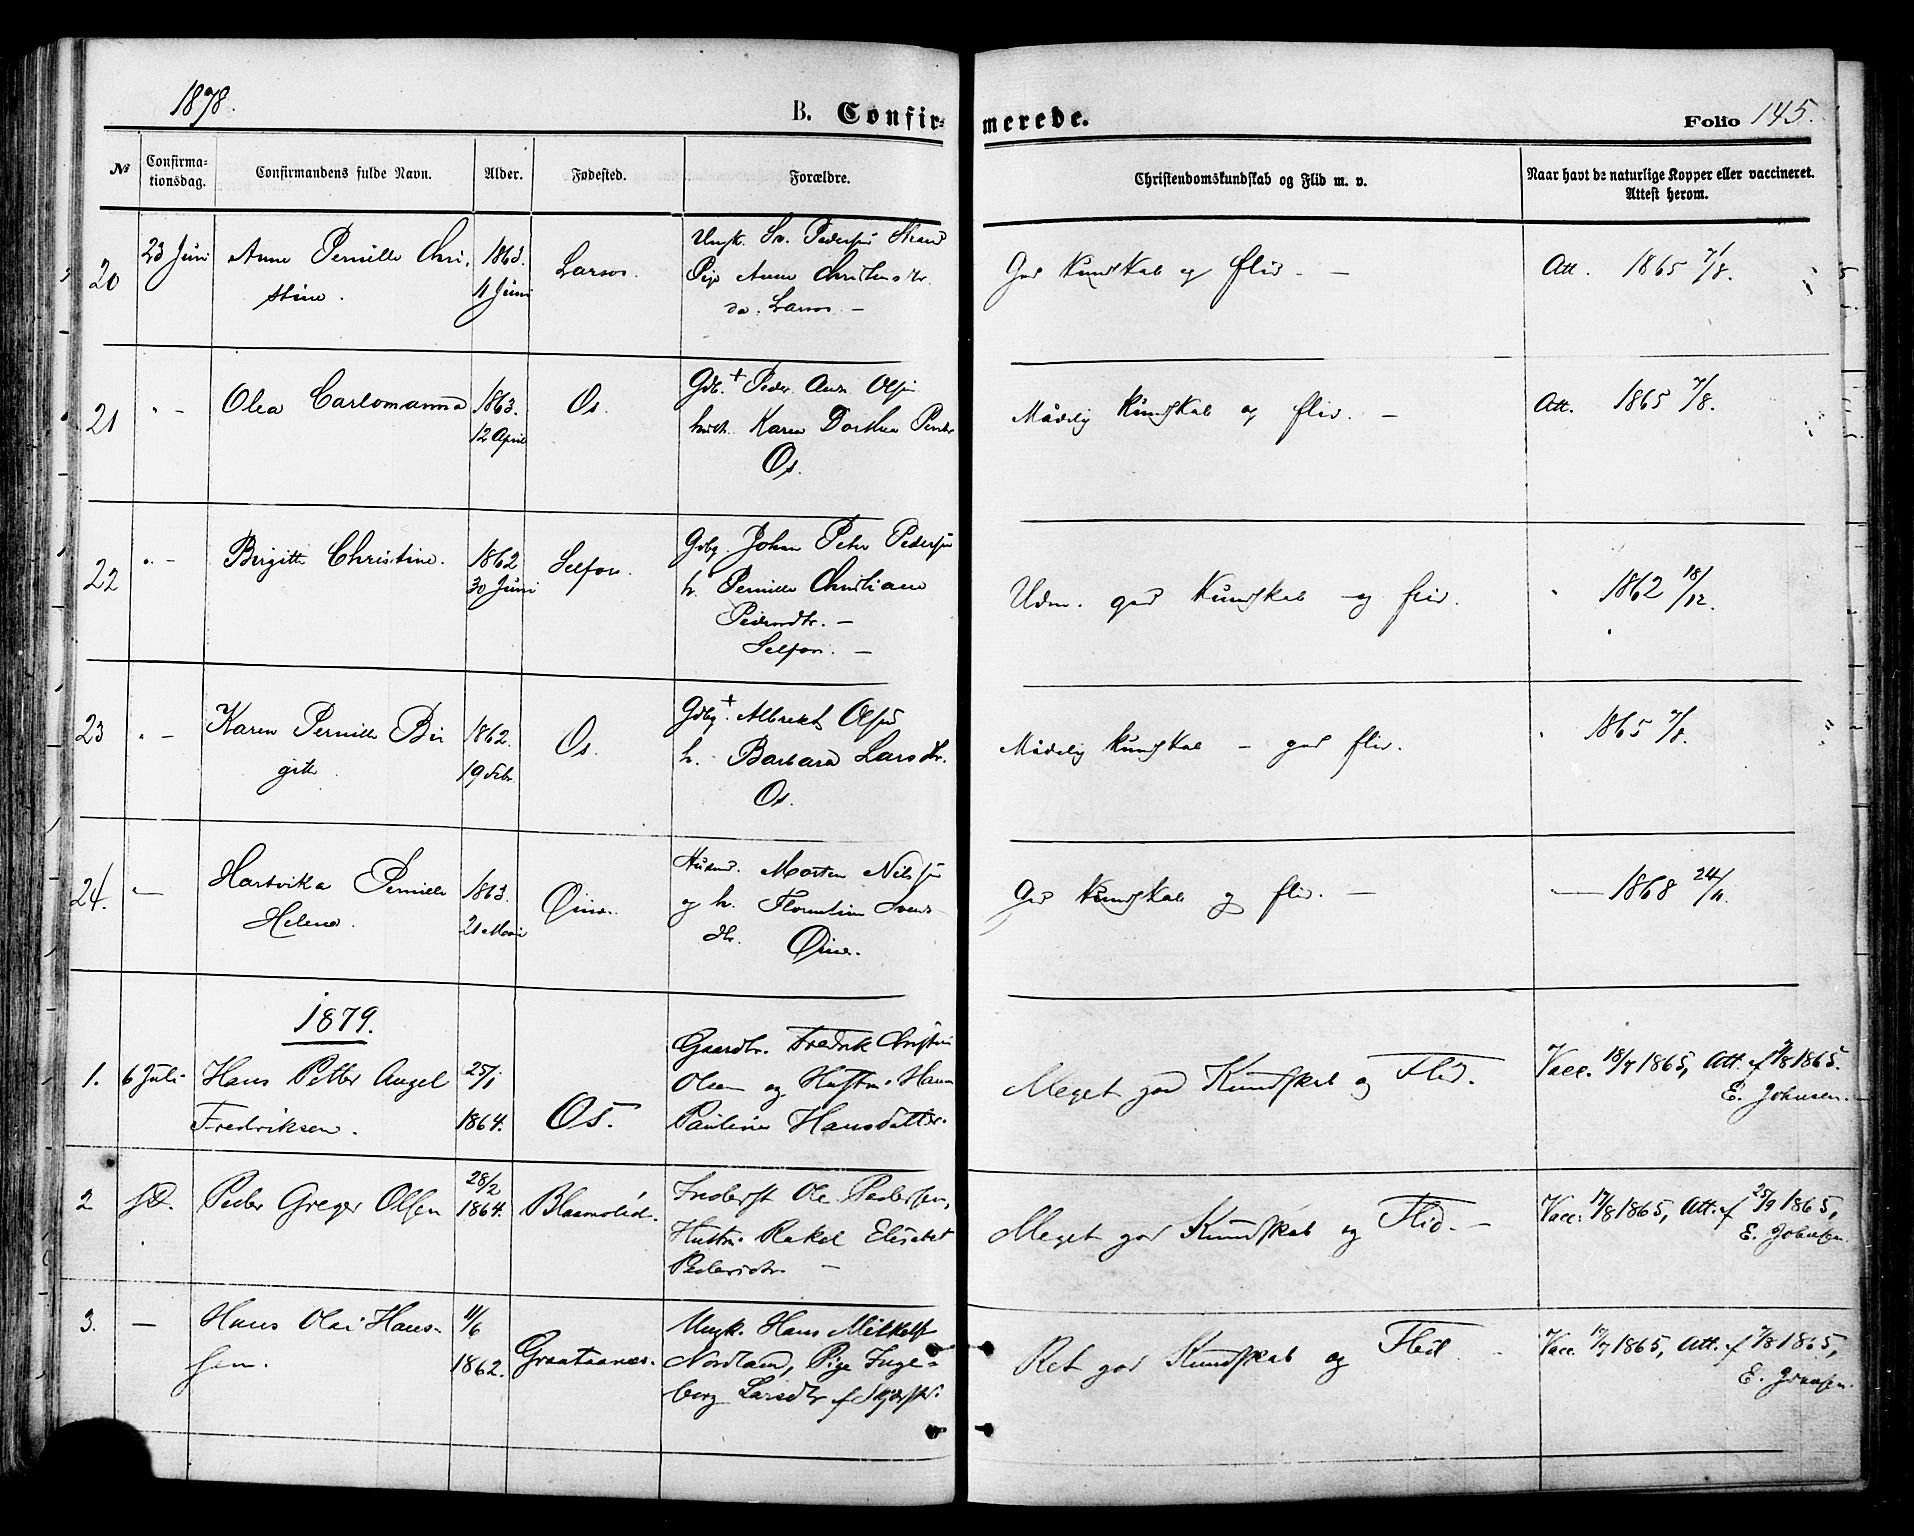 1878.
B. Confirmerede.
Folio 145.
№ Confirmationsdag. Confirmandens fulde Navn. Alder. Fødested. Forældre. Christendomskundskab og Flid m. v. Naar havt de naturlige Kopper eller vaccineret. Attest herom.
20 23 Juni Anne Pernille Chri- 1863. Larsos. Ungk. Pedersen
stine. 11 Juni Pige Anne Christensdtr.
Larsos. —
God Kundskab og Flid. — Att. 1865 7/8.
21 " - Olea Carlomanna 1863. Os. Gdb. + Peder And. Olsen
12 April Karen Dorthea
Os.
Mådelig Kundskab og Flid. — Att. 1865 7/8.
22 " - Birgitte Christine. 1862 Selfors. Gdbg. Johan Peter Pedersen
30 Juni h. Pernille Christiane
Pedersdtr. —
Selfors. —
Udm. god Kundskab og Flid. " 1862 18/12.
23 " - Karen Pernille Bir 1862. Os. Gdbg. + Albrekt Olsen
gitte 19 Febr. h. Barbara Larsdtr.
Os.
Mådelig Kundskab — god Flid. " 1865 7/8.
24. — Hartvika Pernille 1863. Husmd. Morten Nilssen
Helene. 21 og h. Florentine Svens-
dtr.
God Kundskab og Flid. — — 1868 24/11.
1879.
1. 6 Juli Hans Petter Angel 25/1 Gaardbr. Fredrik Christian
Fredriksen. 1864. Os. Olsen og Hustru Hanna
Pauline Hansdatter.
Meget god Kundskab og Flid. Vacc. 18/7 1865, Att. f 7/8 1865.
E. Johnsen.
2 Peder Greger Olsen 28/2 1864. Inderst Ole Pedersen,
Hustru Rakel Elisabet
Pedersdtr. —
Meget god Kundskab og Flid. — Vacc. 17/8 1865, Att. f 25/9 1865,
E. Johnsen.
3. — Hans Olai Hans- 11/6 Ungk. Hans Mikkels.
sen. 1862. Graataanes. Nordland, Pige Inge-
borg Larsdtr f
Ret god Kundskab og Flid — Vacc. 17/7 1865, Att. f 7/8 1865,
E. Johnsen.